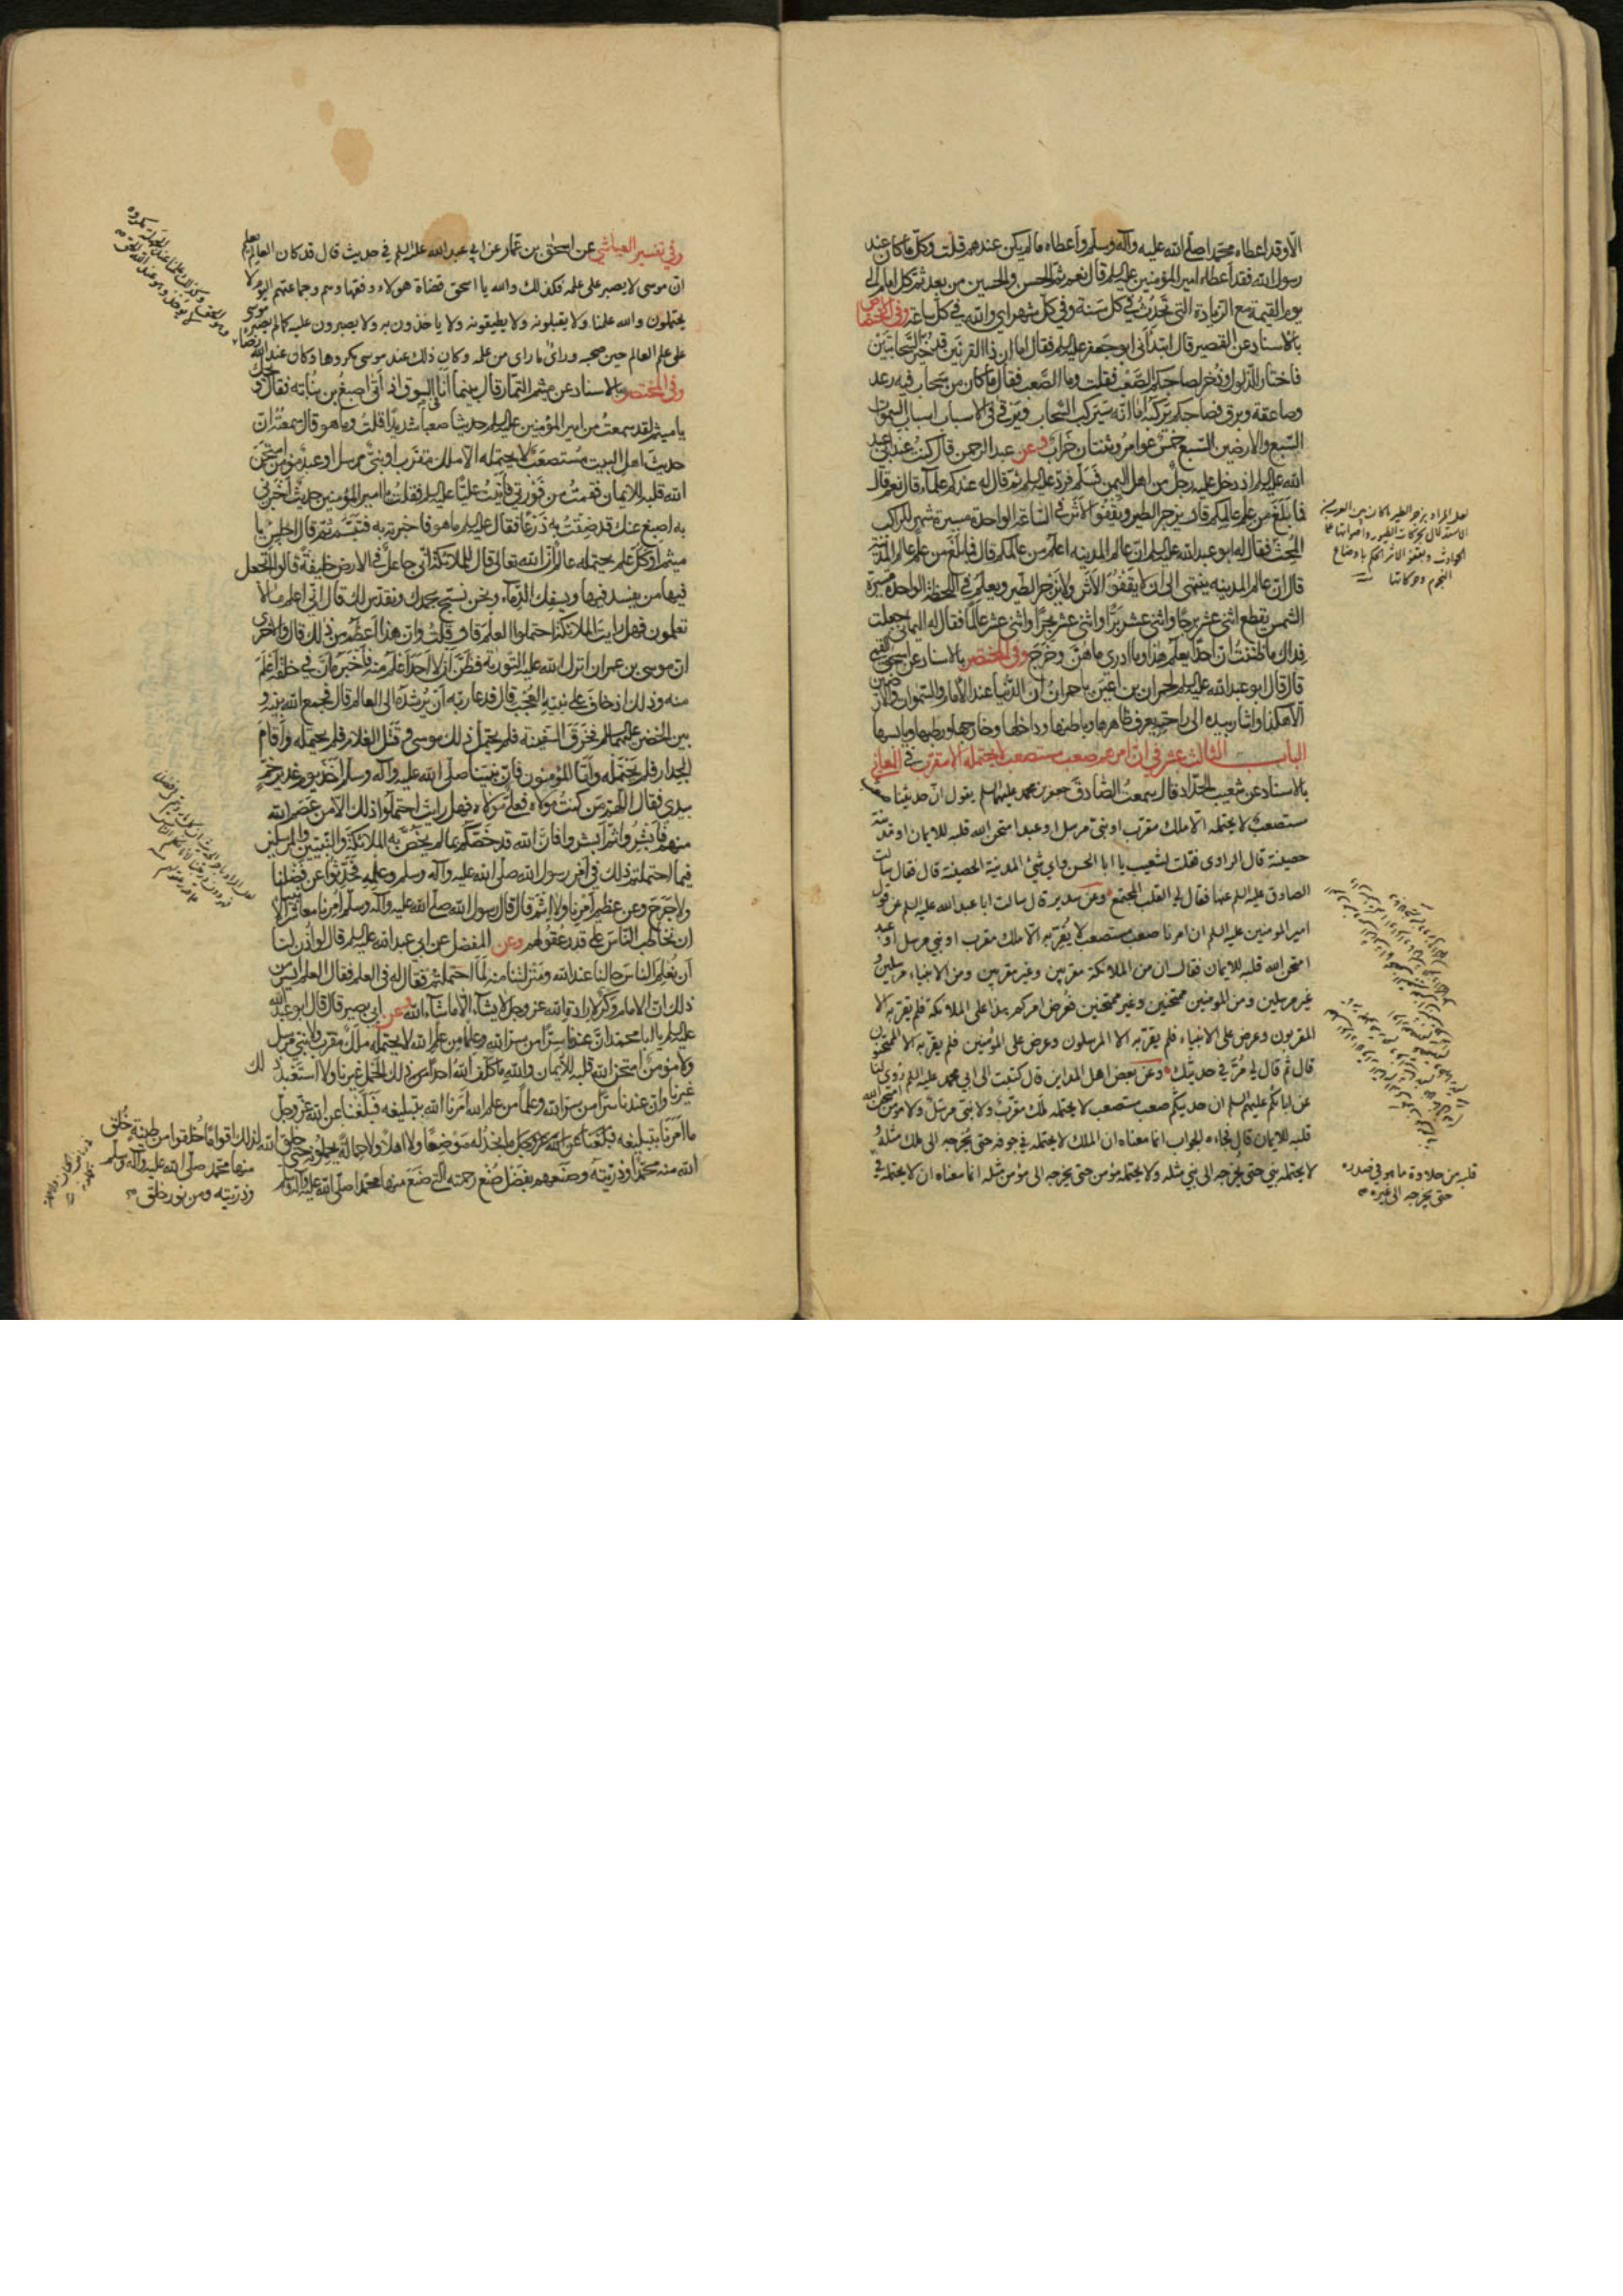 الّا وقد اعطاه محمّدا صلّى الله عليه وآله وسلّم وأعطاه ما لم يكن عندهم قلت وكلّ ما كان عند
رسول الله فقد أعطاه امير المؤمنين عليه السلم قال نعم ثمّ الحسن والحسين من بعد ثمّ كل امام الى
يوم القيمة مع الزيادة التي تحدث في كل سنة وفي كلّ شهر اي والله في كل ساعة وفي الاختصاص
بالاسناد عن القصير قال ابتدأني ابو جعفر عليه السلم فقال اما ان ذا القرنين قد خيّر السحابتين
فاختار الذلول وذخر لصاحبكم الصّعب فقلت وما الصّعب فقال ما كان من سحاب فيه رعد
وصاعقة وبرق فصاحبكم يركبه أما انّه سيركب السّحاب ويرقى في الاسباب اسباب السموات
السّبع والارضين السّبع خمس عوامر وثنتان خراب وعن عبد الرحمن قال كنت عند ابي عبد
الله عليه السلم اذ دخل عليه رجل من اهل اليمن فسلّم فردّ عليه السلم ثم قال له عندكم علماء قال نعم قال
فما بلغ من علم عالمكم قال يزجر الطير ويقفو الأثر في الساعة الواحدة مسيرة شهر للراكب
المُحثّ فقال له ابو عبد الله عليه السلم ان عالم المدينه اعلم من عالمكم قال فما بلغ من علم عالم المدينة
قال ان عالم المدينه ينتهي الى ان لا يقفو الاثر ولا يزجر الطير ويعلم في اللحظة الواحدة مسيرة
الشمس يقطع اثنى عشر برجا واثنى عشر برّا واثنى عشر بحرًا واثنى عشر عالما فقال له اليماني جعلت
فداك ما ظننت أن احدا يعلم هذا وما ادري ما هنّ وخرج وفي المختصر بالاسناد عن اسحق القمي
قال قال ابو عبد الله عليه السلم لحمران بن اعين يا حمران ان الدّنيا عند الامام والسّموات والارضين
الّا هكذا واشار بيده الى راحته يعرف ظاهرها وباطنها وداخلها وخارجها ورطبها ويابسها
الباب الثالث عشر في ان امرهم صعب مستصعب لا يحتمله الا مقرّب في المعاني
بالاسناد عن شعيب الحدّاد قال سمعت الصّادق جعفر بن محمد عليهما السلم يقول انّ حديثنا صعب
مستصعب لا يحتمله الا ملك مقرّب او نبي مرسل او عبد امتحن الله قلبه للايمان او مدينة
حصينة قال الراوي فقلت لشعيب يا ابا الحسن واي شيئ المدينة الحصينة قال فقال سالت
الصادق عليه السلم عنها فقال لي القلب المجتمع وعن سدير قال سالت ابا عبد الله عليه السلم عن قول
امير المومنين عليه السلم ان امرنا صعب مستصعب لا يُقرّ به الّا ملك مقرب او نبي مرسل او عبد
امتحن الله قلبه للايمان فقال ان من الملائكة مقربين وغير مقربين ومن الانبياء مرسلين و
غير مرسلين ومن المومنين ممتحنين وغير ممتحنين فعُرض امركم هذا على الملائكة فلم يقرّ به الا
المقربون وعرض على الانبياء فلم يقرّ به الا المرسلون وعرض على المؤمنين فلم يقرّ به الا الممتحنون
قال ثم قال لي مُرّ في حديثك وعن بعض اهل المداين قال كتبت الى ابي محمد عليه السلم رُوي لنا
عن آبائكم عليهم السلم ان حديثكم صعب مستصعب لا يحتمله ملك مقرّب ولا نبي مرسل ولا مؤمن امتحن الله
قلبه للايمان قال فجاءه الجواب انما معناه ان الملك لا يحتمله في جوفه حتى يُخرجه الى ملك مثله و
لا يحتمله نبي حتى يُخرجه الى نبي مثله ولا يحتمله مؤمن حتى يخرجه الى مؤمن مثله انما معناه ان لا يحتمله في
قلبه من حلاوة ما هو في صدره
حتى يخرجه الى غيره
لعل المراد بزجر الطير ما كان بين العرب من
الاستدلال بحركات الطيور واصواتها على
الحوادث وبقفو الاثر الحكم باوضاع
النجوم وحركاتها
وفي تفسير العياشي عن اسحق بن عمّار عن ابي عبد الله عليه السلم في حديث قال قد كان العالم يعلم
ان موسى لا يصبر على علمه فكذلك والله يا اسحق قضاة هولاء وفقهاؤهم وجماعتهم اليوم لا
يحتملون والله علمنا ولا يقبلونه ولا يطيقونه ولا ياخذون به ولا يصبرون عليه كما لم يصبر موسى
على علم العالم حين صحبه ورائ ما راى من علمه وكان ذلك عند موسى مكروها وكان عند الله رضًا
وفي المختصر بالاسناد عن ميثم التمار قال بينما أنا في السوق اذ أتى اصبغ بن نُباته فقال ويحك
يا ميثم لقد سمعت من امير المؤمنين عليه السلم حديثا صعبا شديدًا قلت وما هو قال سمعته ان
حديث اهل البيت مُستصعب لا يحتمله الا ملك مقرب او نبي مرسل او عبد مؤمن امتحن
الله قلبه للايمان فقمت من فوري فأتيت عليًّا عليه السلم فقلت يا امير المؤمنين حديث أخبرني
به اصبغ عنك قد ضقت به ذرعًا فقال عليه السلم ما هو فاخبرته به فتبسّم ثم قال اجلس يا
ميثم أو كل علم يحتمله عالم ان الله تعالى قال للملائكة اني جاعل في الارض خليفة قالوا أتجعل
فيها من يفسد فيها ويسفك الدّماء ونحن نسبّح بحمدك ونقدّس لك قال اني اعلم ما لا
تعلمون فهل رايت الملائكة احتملوا العلم قال قلت وان هذا أعظم من ذلك قال والاخرى
ان موسى بن عمران انزل الله عليه التورىة فظن أن لا احد أعلم منه فأخبره أنّ في خلقه أعلم
منه وذلك اذ خاف على نبيّه العُجب قال فدعا ربّه أن يُرشده الى العالم قال فجمع الله بينه و
بين الخضر عليهما السلم فخرق السّفينة فلم يحتمل ذلك موسى وقتل الغلام فلم يحتمله وأقام
الجدار فلم يحتمله وأمّا المؤمنون فان نبيّنا صلّى الله عليه وآله وسلم أخذ يوم غدير خمّ
بيدي فقال اللّهم من كنت مولاه فعليّ مولاه فهل رايت احتملوا ذلك الا من عصم الله
منهم فأبشروا ثمّ أبشروا فانّ الله قد خصّكم بما لم يخصّ به الملائكة والنّبيين والمرسلين
فيما احتملتم ذلك في أمر رسول الله صلى الله عليه وآله وسلم وعلمه فحدّثوا عن فضلنا
ولا حرج وعن عظيم أمرنا ولا إثم قال قال رسول الله صلّى الله عليه وآله وسلم أُمرنا معاشر الانبياء
ان نخاطب النّاس على قدر عقولهم وعن المفضل عن ابي عبد الله عليه السلم قال لو أُذن لنا
أن نُعلم الناس حالنا عند الله ومنزلتنا منه لما احتملتم فقال له في العلم فقال العلم أيسر من
ذلك ان الامام وكر لارادة الله عز وجل لا يشاء الا ما شاء الله وعن ابي بصير قال قال ابو عبد الله
عليه السلم يا ابا محمد انّ عندنا سرًّا من سرّ الله وعلمًا من علم الله لا يحتمله ملك مقرب ولا نبي مرسل
ولا مؤمن امتحن الله قلبه للايمان والله ما كلّف الله أحدًا من ذلك الحمل غيرنا ولا استعبد بذلك
غيرنا وان عندنا سرًّا من سرّ الله وعلمًا من علم الله امرنا الله بتبليغه فبلّغنا عن الله عزّ وجلّ
ما امرنا بتبليغه فبلّغنا عن الله عز وجل ما نجد له موضعًا ولا اهلاً ولا حمالة يحملونه حتى خلق الله لذلك اقوامًا خُلقوا من طينة خُلق
منها محمّد صلى الله عليه وآله وسلم
وذريته ومن نور خلق
الله منه محمّدا وذريّته وصنعهم بفضل صُنع رحمته التي صنع منها محمّدا صلّى الله عليه وآله وسلم